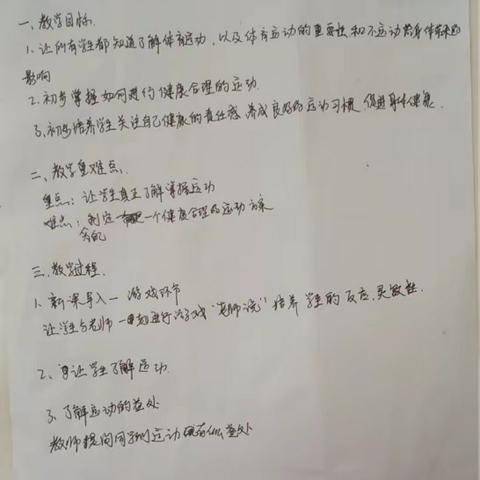 一、教学目标.
1.让所有学生都知道了解体育运动,以及体育运动的重要性和不运动给身体带来的
影响
2.初步掌握如何进行健康合理的运动.
3.初步培养学生关注自己健康的责任感,养成良好的运动习惯,促进身体健康.
二、教学重难点.
重点:让学生真正了解掌握运动
难点:制定一个健康合理的运动方案
三、教学过程.
1.新课导入一游戏环节
让学生与老师一起进行游戏“老师说”培养学生的反应,灵敏性.
2、让学生了解运动.
3、了解运动的益处
教师提问同学们运动有什么益处